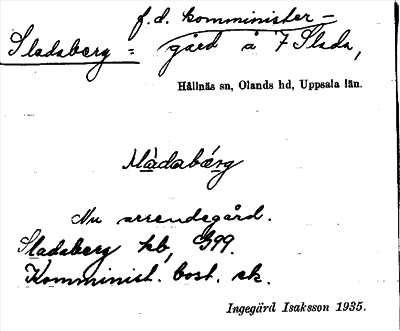 f.d. komminister-
Sladaberg = gård å 7 Slada,
Hållnäs sn, Olands hd, Uppsala län.
Nu arrendegård.
Sladaberg kb, G99.
Komminist. bost. ek.
Ingegärd Isaksson 1935.